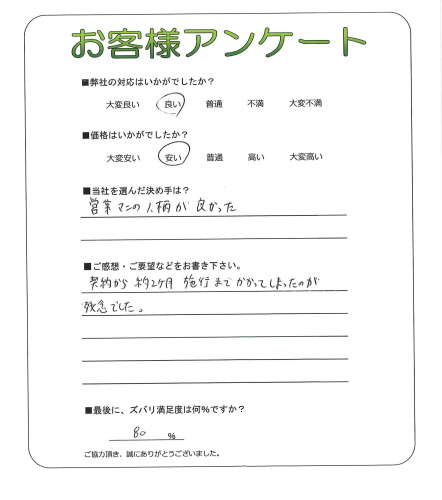 お客様アンケート
■弊社の対応はいかがでしたか?
大変良い 良い 普通 不満 大変不満
■価格はいかがでしたか?
大変安い 安い 普通 高い 大変高い
■当社を選んだ決め手は?
営業マンの人柄が良かった
■ご感想・ご要望などをお書き下さい。
契約から約2ヶ月施行までかかってしまったのが
残念でした。
■最後に、ズバリ満足度は何%ですか?
80 %
ご協力頂き、誠にありがとうございました。